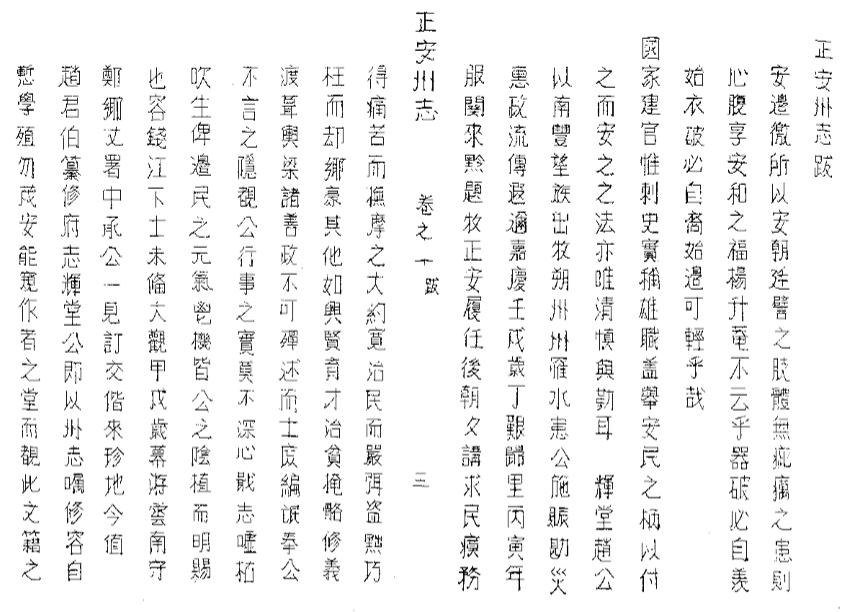 正安州志跋
安邊徼所以安朝廷譬之肢體無疵癘之患則
心腹享安和之福楊升菴不云乎器破必自羡
始衣破必自裔始邊可輕乎哉
國家建官惟刺史實稱雄職盖舉安民之柄以付
之而安之之法亦唯清慎與勤耳 輝堂趙公
以南豐望族出牧朔州州罹水患公施賑勘災
惠政流傳遐邇嘉慶壬戌歲丁艱歸里丙寅年
服闋來黔題牧正安履任後朝夕講求民瘼務
正安州志 卷之下 跋 三
得痛苦而撫摩之大約寛治民而嚴弭盗黜巧
枉而却鄉豪其他如興賢育才治貧掩骼修義
渡葺輿梁諸善政不可殫述而士庶編氓奉公
不言之隱觀公行事之實莫不深心戢志噓枯
吹生俾邊民之元氣鬯機皆公之陰植而明賜
也容錢江下士未脩大觀甲戌歲幕游雲南守
鄭鄉丈署中承公一見訂交偕來珍地今值
趙君伯纂修府志輝堂公即以州志囑修容自
慙學殖勿茂安能寛作者之堂而觀此文籍之